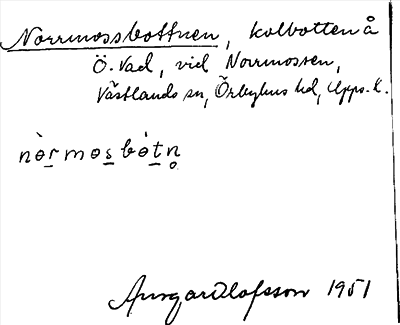 Norrmossbottnen, kolbotten å
Ö. Vad, vid Norrmossen,
Västlands sn, Örbyhus hd, Upps. l.
nòrmosbòtn̥
Olofsson 1951